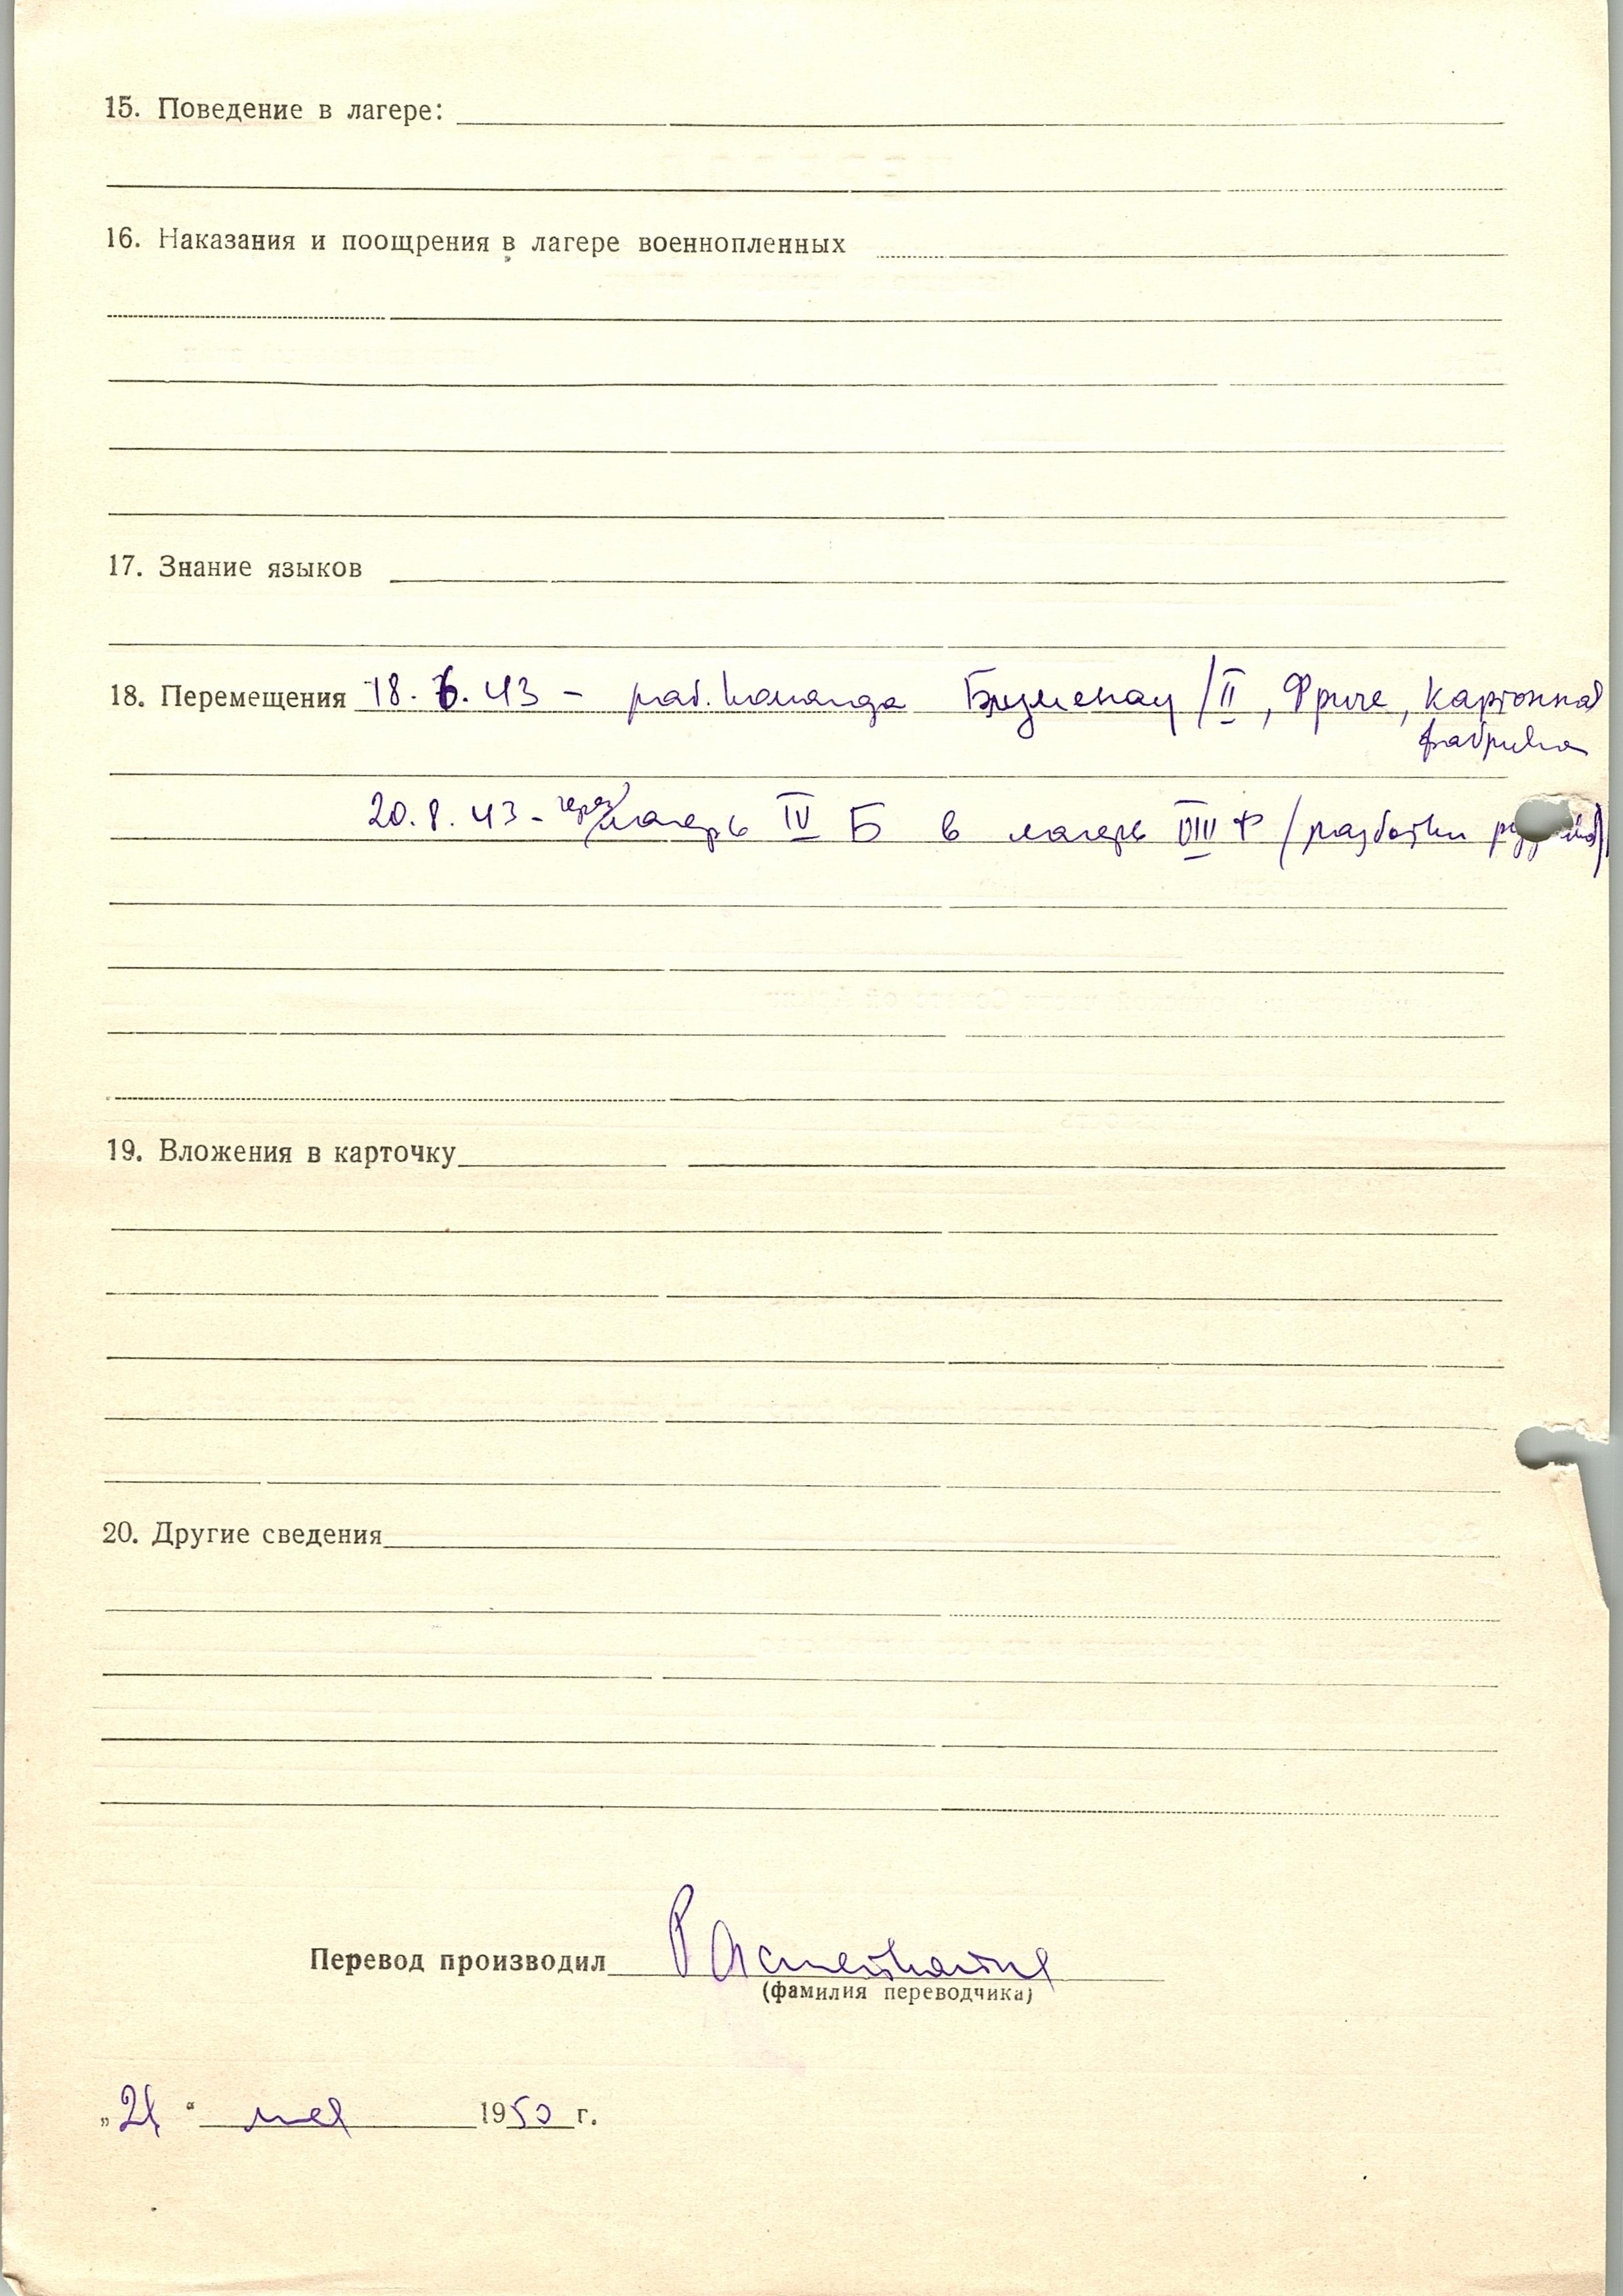 15. Поведение в лагере:
16. Наказания и поощрения в лагере военнопленных
17. Знание языков
18. Перемещения 18. 6. 43 – раб. команда Блуменау /II, Фриче, картонная
фабрика
20. 8. 43 - через лагерь IV Б в лагерь VIII Ф (разботки
19. Вложения в карточку
20. Другие сведения
Перевод производил
(фамилия переводчика)
„21“ мая 1950 г.